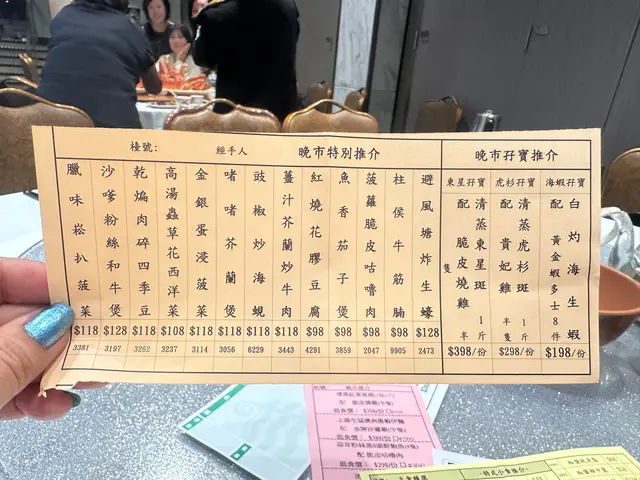 檯號:
經手人
晚市特別推介
臘味崧扒菠菜
$118
3381
沙嗲粉絲和牛煲
$128
3197
乾煸肉碎四季豆
$118
3262
高湯蟲草花西洋菜
$108
3237
金銀蛋浸菠菜
$118
3114
啫啫芥蘭煲
$118
3056
豉椒炒海蜆
$118
6229
薑汁芥蘭炒牛肉
$118
3443
紅燒花膠豆腐
$98
4291
魚香茄子煲
$98
3859
菠蘿脆皮咕嚕肉
$98
2047
柱侯牛筋腩
$98
9905
避風塘炸生蠔
$128
2473
晚市孖寶推介
東星孖寶
清蒸東星斑 1斤
配 脆皮燒雞 隻
$398/份
虎杉孖寶
清蒸虎杉斑 半斤
配 貴妃雞 半隻
$298/份
海蝦孖寶
白灼海生蝦
配 黃金蝦多士8件
$198/份
配 脆皮咕嚕肉